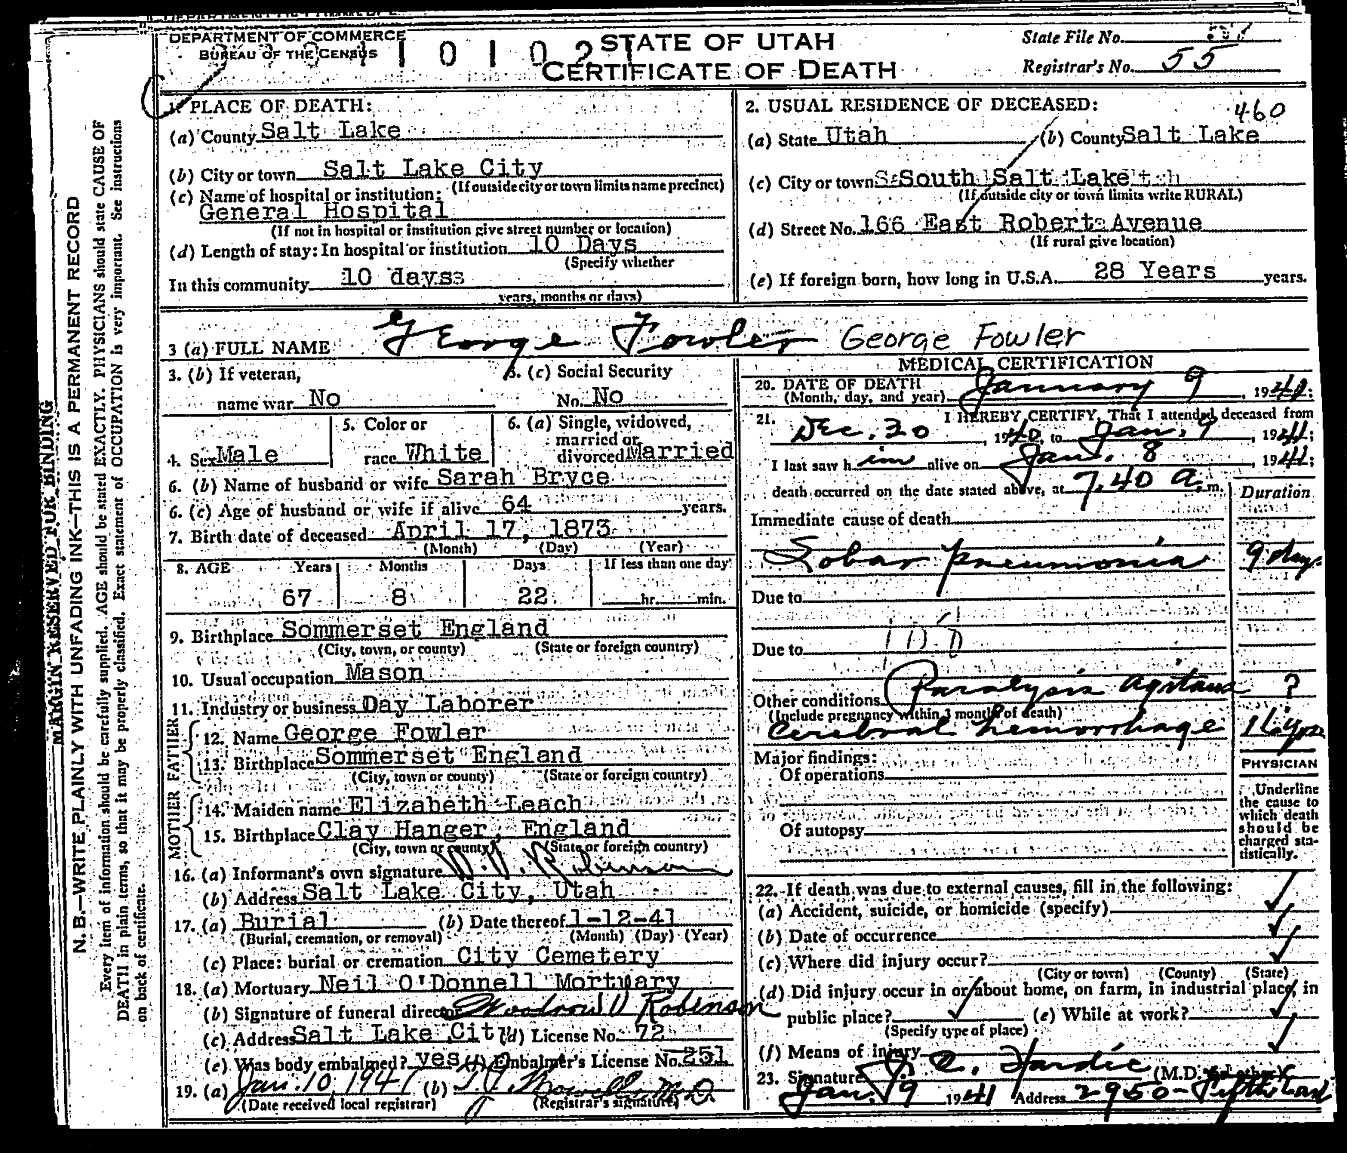 DEPARTMENT OF COMMERCE
BUREAU OF THE CENSUS
STATE OF UTAH
CERTIFICATE OF DEATH
State File No.
Registrar's No. 55
MARGIN RESERVED FOR BINDING
N. B.—WRITE PLAINLY WITH UNFADING INK—THIS IS A PERMANENT RECORD
Every item of information should be carefully supplied. AGE should be stated EXACTLY. PHYSICIANS should state CAUSE OF
DEATH in plain terms, so that it may be properly classified. Exact statement of OCCUPATION is very important. See instructions
on back of certificate.
1. PLACE OF DEATH:
(a) County Salt Lake
(b) City or town Salt Lake City
(If outside city or town limits name precinct)
(c) Name of hospital or institution:
General Hospital
(If not in hospital or institution give street number or location)
(d) Length of stay: In hospital or institution 10 Days
(Specify whether
In this community 10 days
years, months or days)
2. USUAL RESIDENCE OF DECEASED:
460
(a) State Utah (b) County Salt Lake
(c) City or town South Salt Lake
(If outside city or town limits write RURAL)
(d) Street No. 166 East Robert Avenue
(If rural give location)
(e) If foreign born, how long in U.S.A. 28 Years years.
3 (a) FULL NAME George Fowler George Fowler
3. (b) If veteran,
name war No
3. (c) Social Security
No. No
4. Sex Male
5. Color or
race White
6. (a) Single, widowed,
married or
divorced Married
6. (b) Name of husband or wife Sarah Bryce
6. (c) Age of husband or wife if alive 64 years.
7. Birth date of deceased April 17, 1873
(Month) (Day) (Year)
8. AGE Years Months Days If less than one day
67 8 22 hr. min.
9. Birthplace Sommerset England
(City, town, or county) (State or foreign country)
10. Usual occupation Mason
11. Industry or business Day Laborer
FATHER
12. Name George Fowler
13. Birthplace Sommerset England
(City, town or county) (State or foreign country)
MOTHER
14. Maiden name Elizabeth Leach
15. Birthplace Clay Hanger, England
(City, town or county) (State or foreign country)
16. (a) Informant's own signature W. V. Robinson
(b) Address Salt Lake City, Utah
17. (a) Burial (b) Date thereof 1-12-41
(Burial, cremation, or removal) (Month) (Day) (Year)
(c) Place: burial or cremation City Cemetery
18. (a) Mortuary Neil O'Donnell Mortuary
(b) Signature of funeral director Woodrow V Robinson
(c) Address Salt Lake City (d) License No. 72
(e) Was body embalmed? yes (f) Embalmer's License No. 251
19. (a) Jan. 10 1941 (b) M.D.
(Date received local registrar) (Registrar's signature)
MEDICAL CERTIFICATION
20. DATE OF DEATH January 9, 1941.
(Month, day, and year)
21. I HEREBY CERTIFY, That I attended deceased from
Dec. 30, 1940, to Jan. 9, 1941;
I last saw him alive on Jan. 8 1941;
death occurred on the date stated above, at 7.40 a. m.
Duration
Immediate cause of death
Lobar Pneumonia 9 days
Due to
Due to
Other conditions Paralysis Agitans ?
(Include pregnancy within 3 months of death)
Cerebral hemorrhage
Major findings:
Of operations
Of autopsy
PHYSICIAN
Underline
the cause to
which death
should be
charged sta-
tistically.
22. If death was due to external causes, fill in the following:
(a) Accident, suicide, or homicide (specify)
(b) Date of occurrence
(c) Where did injury occur?
(City or town) (County) (State)
(d) Did injury occur in or about home, on farm, in industrial place, in
public place? (e) While at work?
(Specify type of place)
(f) Means of injury
23. Signature C. Hardie (M.D.
Jan. 9 1941 Address 2950-Fifth East